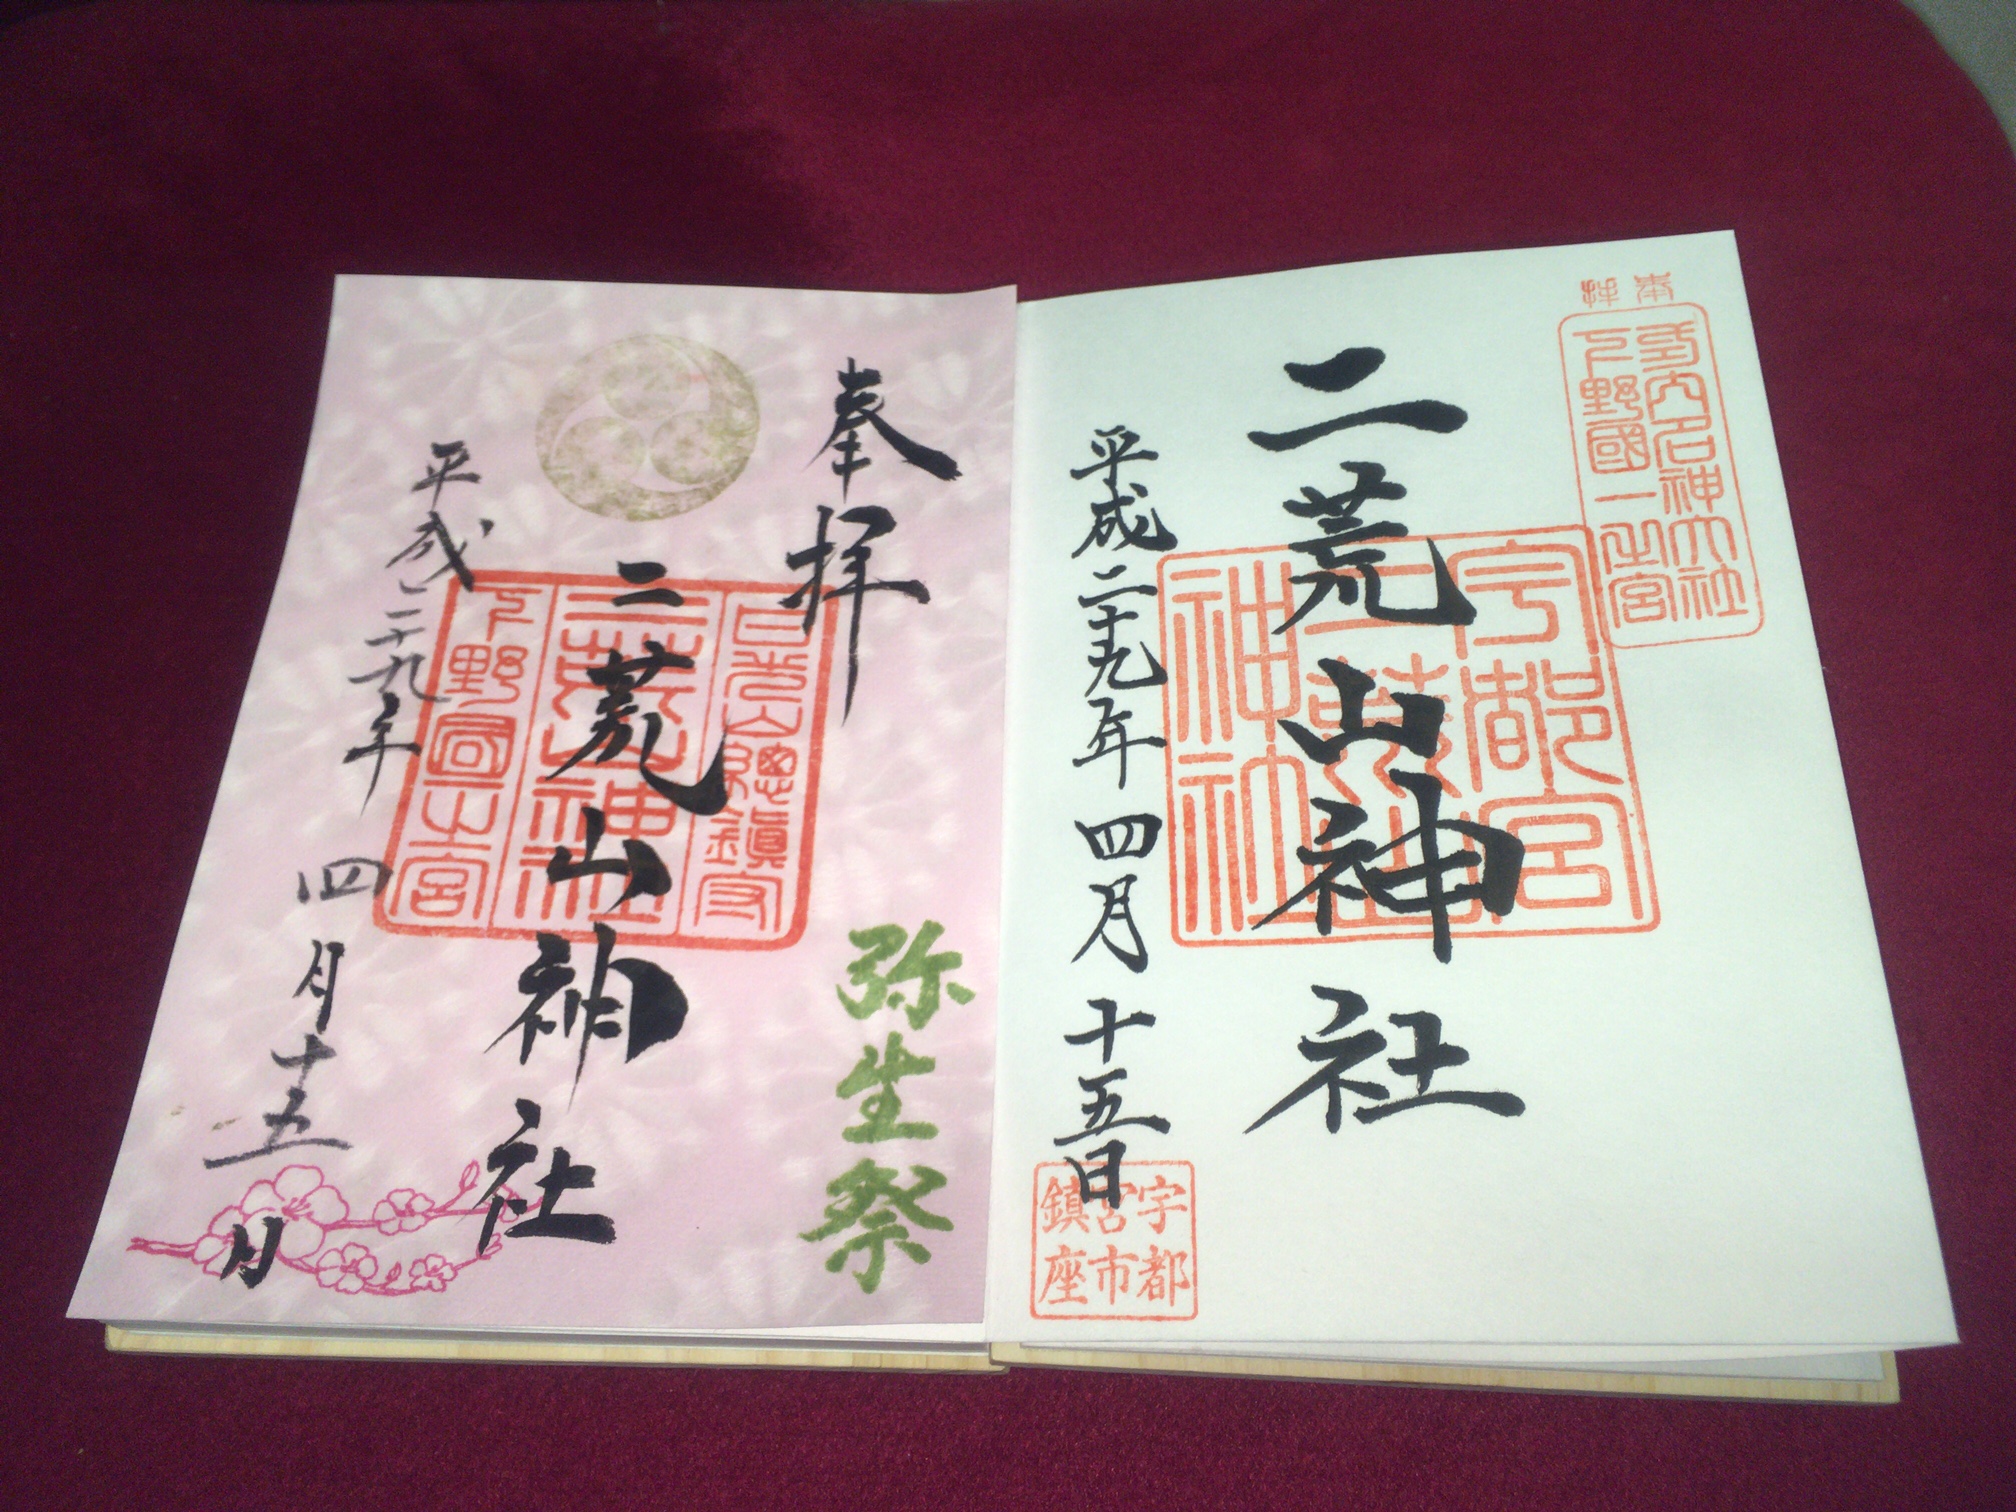 奉拝
式内名神大社
下野國一之宮
二荒山神社
宇都宮
二荒山
神社
平成二十九年四月十五日
宇都
宮市
鎮座
奉拝
弥生祭
二荒山神社
日光山總鎮守
二荒山神社
下野国一之宮
平成二十九年四月十五日